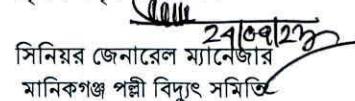 24|09|23
সিনিয়র জেনারেল ম্যানেজার
মানিকগঞ্জ পল্লী বিদ্যুৎ সমিতি